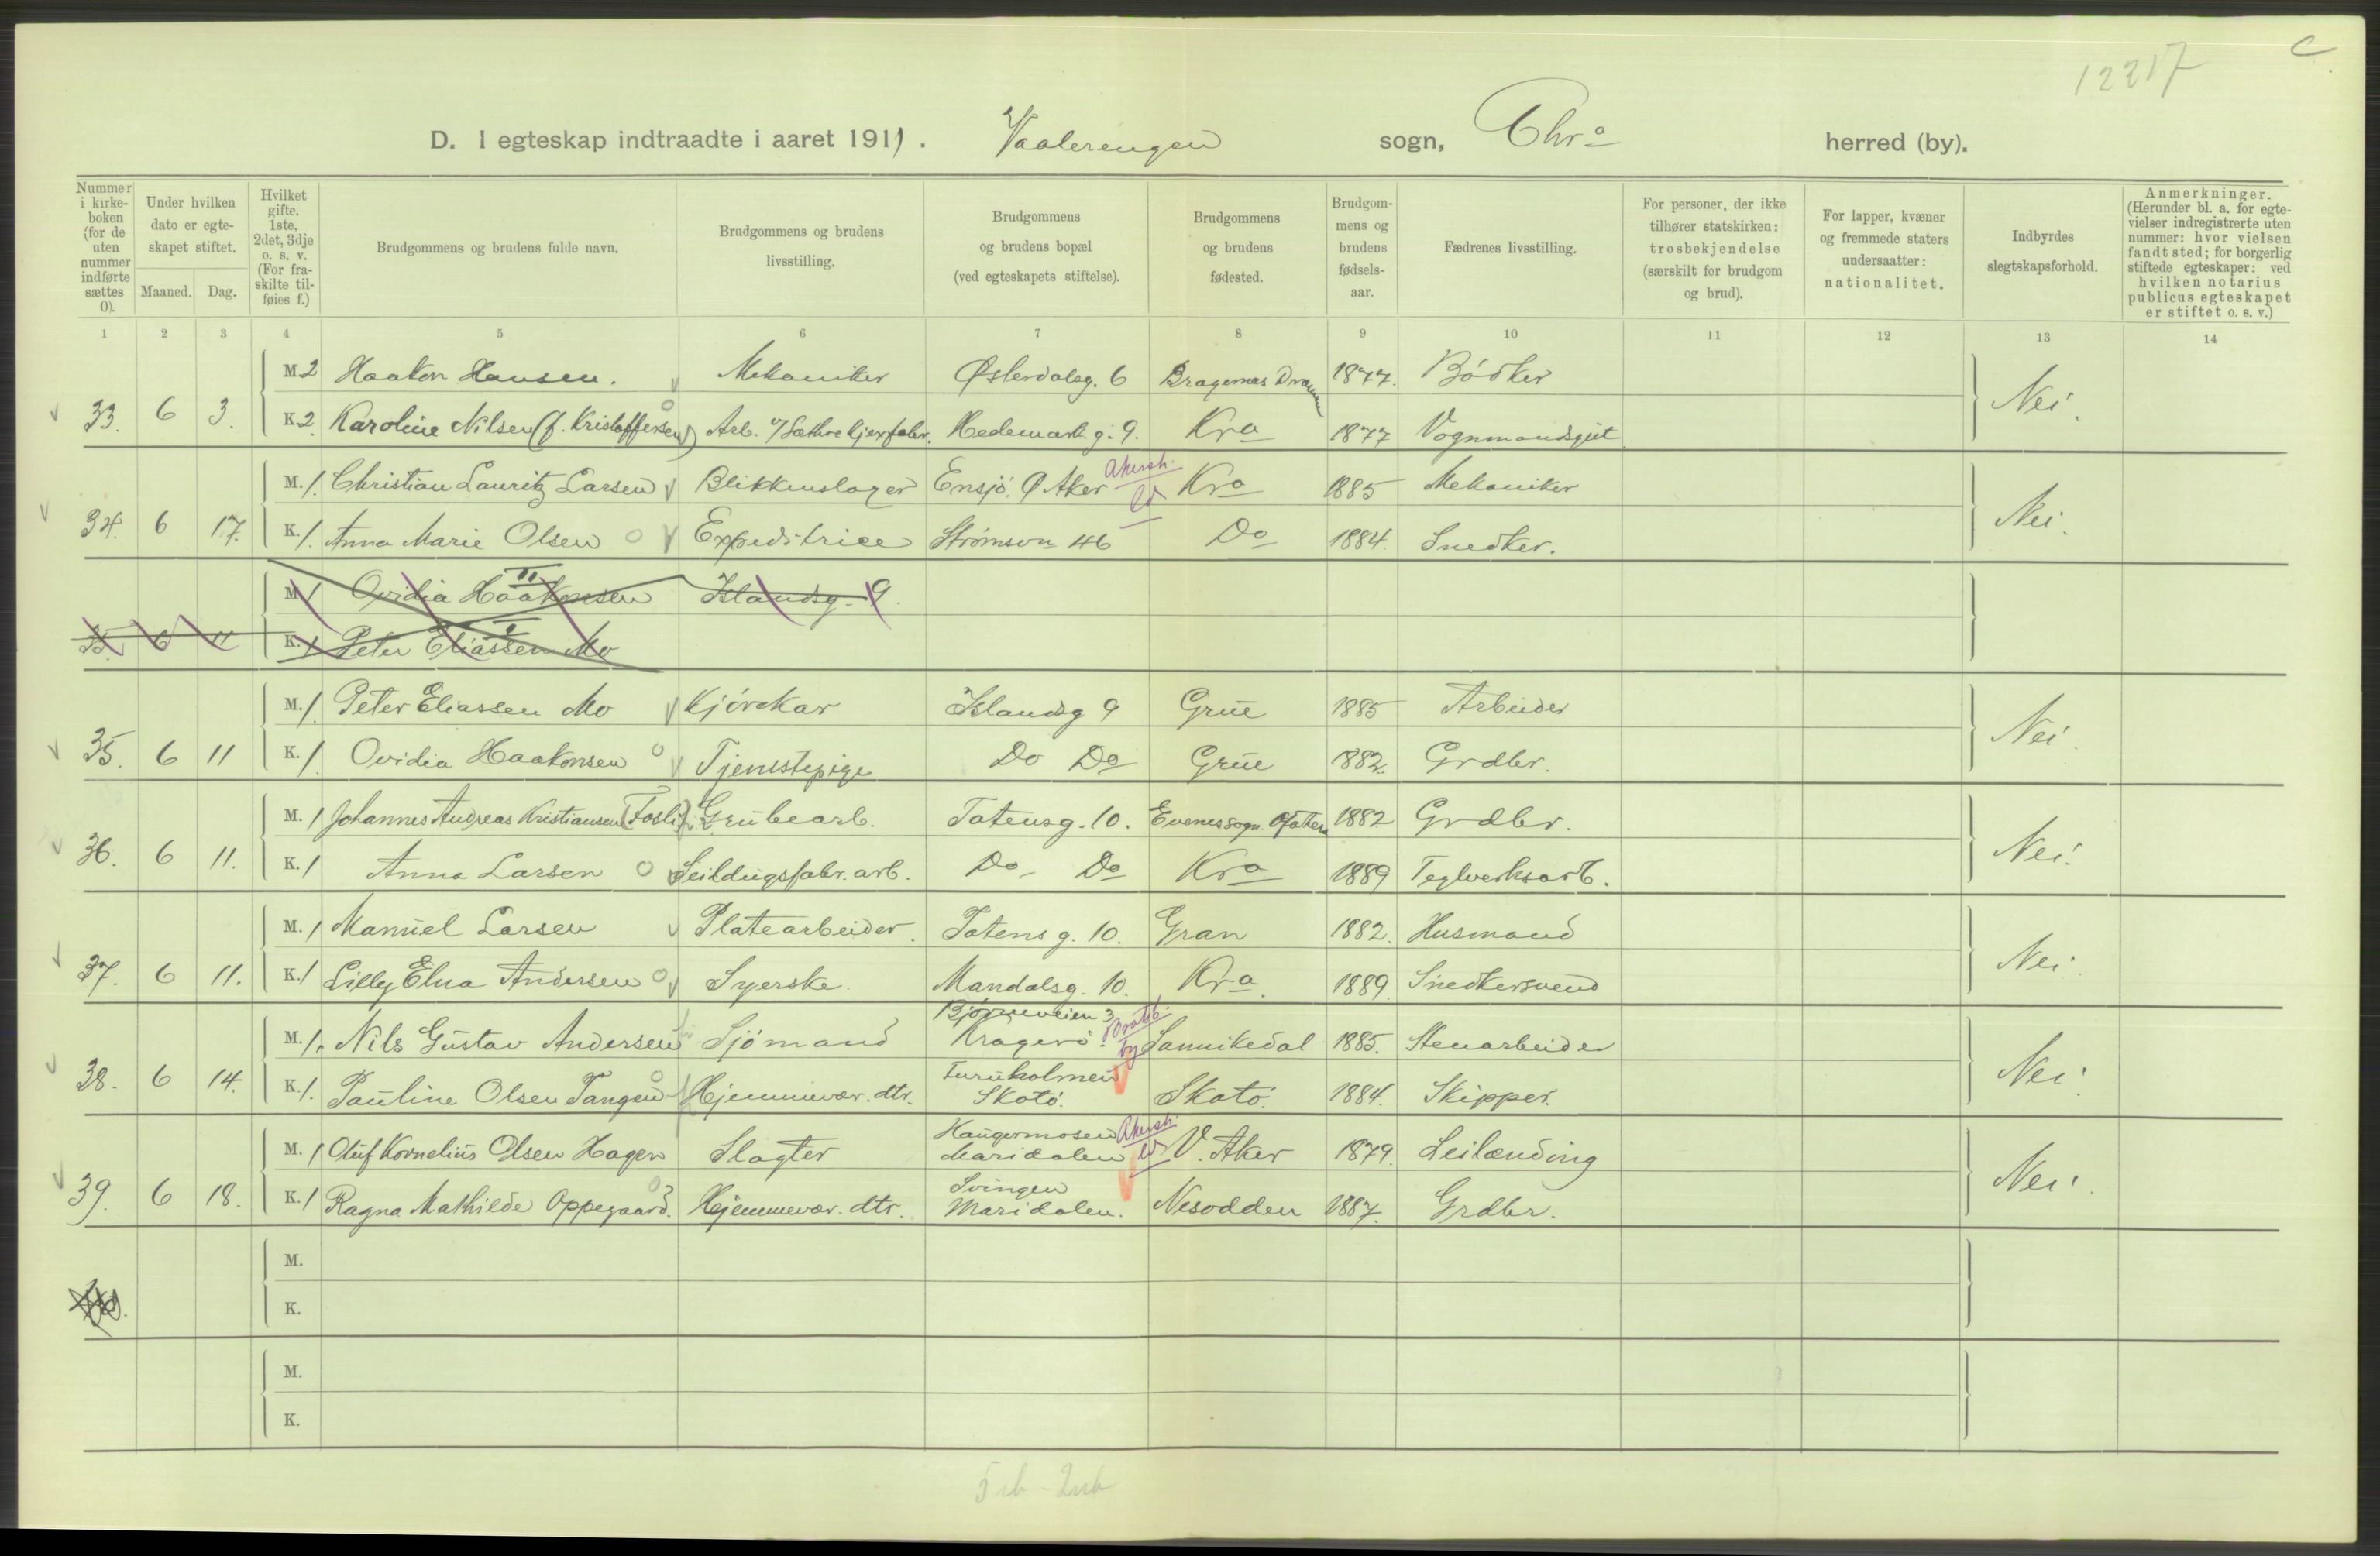 C
12217
D. I egteskap indtraadte i aaret 1911. Vaalerengen sogn, Chr.a herred (by).
Nummer i kirke-boken (for de uten nummer indførte sættes 0).
Under hvilken dato er egte-skapet stiftet.
Maaned. Dag.
Hvilket gifte. 1ste, 2det, 3dje o. s. v. (For fra-skilte til-føies f.)
Brudgommens og brudens fulde navn.
Brudgommens og brudens livsstilling.
Brudgommens og brudens bopæl (ved egteskapets stiftelse).
Brudgommens og brudens fødested.
Brudgom-mens og brudens fødsels-aar.
Fædrenes livsstilling.
For personer, der ikke tilhører statskirken: trosbekjendelse (særskilt for brudgom og brud).
For lapper, kvæner og fremmede staters undersaatter: nationalitet.
Indbyrdes slegtskapsforhold.
Anmerkninger. (Herunder bl. a. for egte-vielser indregistrerte uten nummer: hvor vielsen fandt sted; for borgerlig stiftede egteskaper: ved hvilken notarius publicus egteskapet er stiftet o. s. v.)
1 2 3 4 5 6 7 8 9 10 11 12 13 14
M 2 Haakon Hansen. Mekaniker Østerdalsg. 6 Bragernes Drammen 1877. Bódker
33. 6 3. K. 2 Karoline Nilsen (f. Kristoffersen) Arb. v/ Sæthre kjexfabr. Hedemark g. 9. Kra 1877 Vognmandsgut Nei.
M. 1. Christian Lauritz Larsen Blikkenslager Ensjó. Ø Aker Akersh. ld Kra 1885 Mekaniker
34. 6 17. K. 1. Anna Marie Olsen Expeditrice Strømsvn 46 Do 1884. Snedker. Nei.
M. 1 Ovidia Haakonsen II Islandsg. 9.
35. 6 11 K. 1 Peter Eliassen Mo I
M. 1. Peter Eliassen Mo Kjórekar Islandsg 9 Grue 1885 Arbeider
35. 6 11 K. 1. Ovidia Haakonsen Tjenestepige Do Do Grue 1882. Grdbr. Nei.
M. 1 Johannes Andreas Kristiansen (Fosli) Grubearb. Totensg. 10. Evenes sogn. Ofoten 1882 Grdbr.
36. 6 11. K. 1 Anna Larsen Seildugsfabr. arb. Do Do Kra 1889 Teglverksarb. Nei.
M. 1 Manuel Larsen Platearbeider. Totens g. 10. Gran 1882. Husmand
37. 6 11. K. 1 Lilly Elna Andersen Syerske. Mandalsg. 10. Kra 1889 Snedkersvend Nei.
M. 1. Nils Gustav Andersen Sjómand Bjørneveien 3 Kragerö. Bratsb. by Sannikedal 1885. Stenarbeider
38. 6 14. K. 1. Pauline Olsen Tangen Hjemmevær. dtr. Furuholmen Skotö. Skató. 1884. Skipper. Nei.
M. 1 Oluf Kornelius Olsen Hagen Slagter Haugermosen Maridalen Akersh. ld V. Aker 1879. Leilænding
39. 6 18. K. 1 Ragna Mathilde Oppegaard. Hjemmevær. dtr. Svingen Maridalen. Nesodden 1887. Grdbr. Nei.
M.
K.
M.
K.